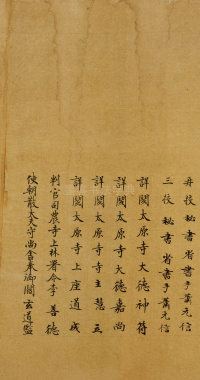 再校 秘書省書手蕭元信
三校 秘書省書手蕭元信
詳閱太原寺大德神符
詳閱太原寺大德嘉尚
詳閱太原寺寺主慧立
詳閱太原寺上座道成
判官司農寺上林署令李善德
使朝散大夫守尚舍奉御閻玄道監